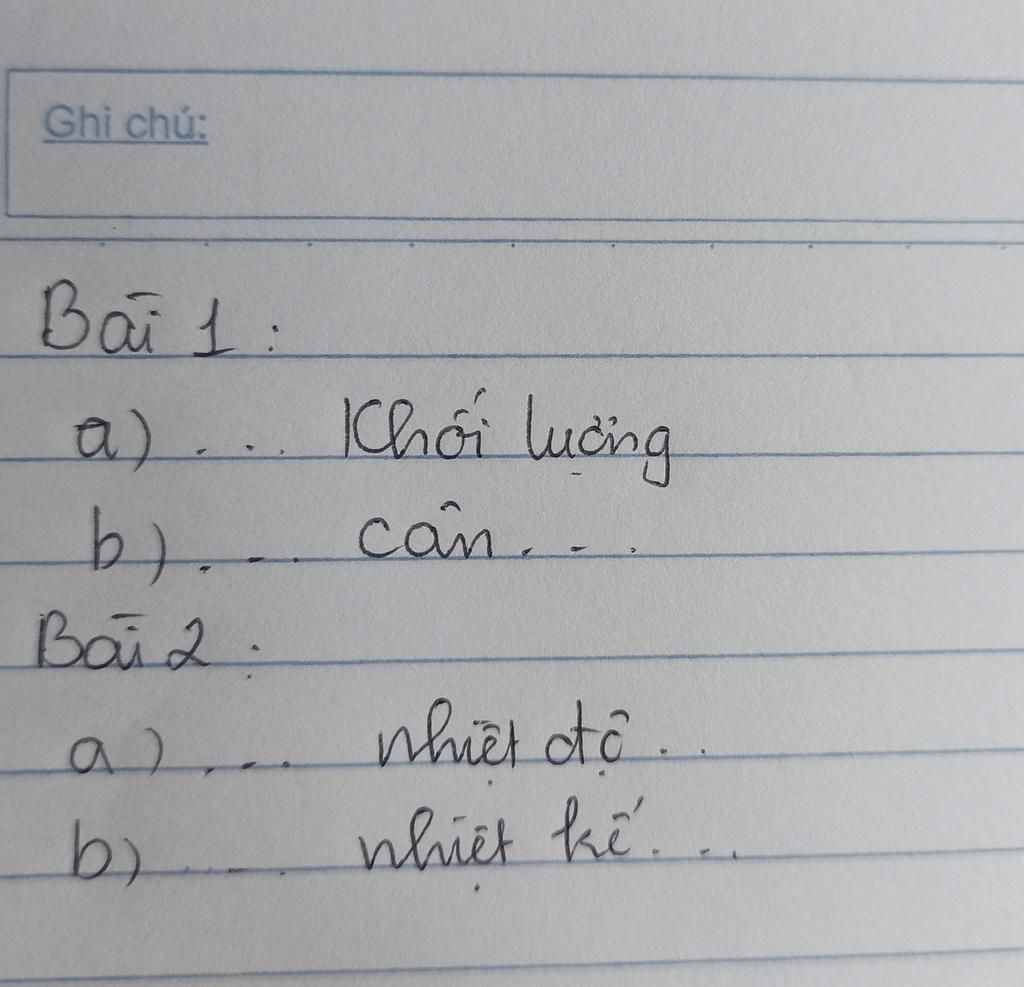 Ghi chú:
Bài 1:
a) ... Khối lượng
b) ... cân ...
Bài 2:
a) ... nhiệt độ ..
b) ... nhiệt kế ...